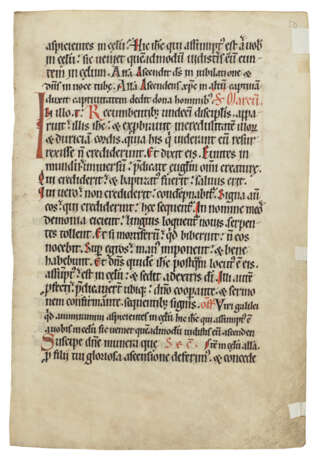 aspicientes in celu. hic ihc qui assumpt' est a uob
in celu. sic ueniet quēadmodū uidistis eum eun
tem in celum. All'a Ascendit ds in iubilatione &
dn's in uoce tube. All'a Ascendens xpc in altū captiuā
duxit captiuitatem dedit dona hominib'. S. Marcū.
In illo t. Recumbentib; undeci discipl'is appa
ruit illis ihc. & exprobrauit incredulitatē illor;
& duriciā cordis. quia his q' uiderant eū resur
rexisse n crediderunt. Et dixit eis. Euntes in
mundū uniuersū. p'dicate euuglm omi creature.
Qui crediderit & baptizat' fuerit. saluus erit.
Qui uero non crediderit. condepnabit. Signa aū
eos qui crediderint. hec sequent'. In nomine meo
demonia eicient. linguis loquent' nouis. serpen
tes tollent. Et si mortiferū qd biberint. n eis
nocebit. Sup egros man' imponent. & bene
habebunt. Et dn's quidē ihc postqm locut' e eis.
assūpt' est in celu. & sedet a dextris di. Illi aut
pfecti. p'dicauer ubiq;. dno cooperante. & sermo
nem confirmante. sequentib; signis. off Viri galilei
quid ammiramini aspicientes in celu hic ihc qui assumpt' e
a uobis in celu sic ueniet quēadmodū uidistis eū ascenden
Suscipe dne munera que Sec. tē in celū all'a.
p filii tui gloriosa ascensione deferim'. & concede